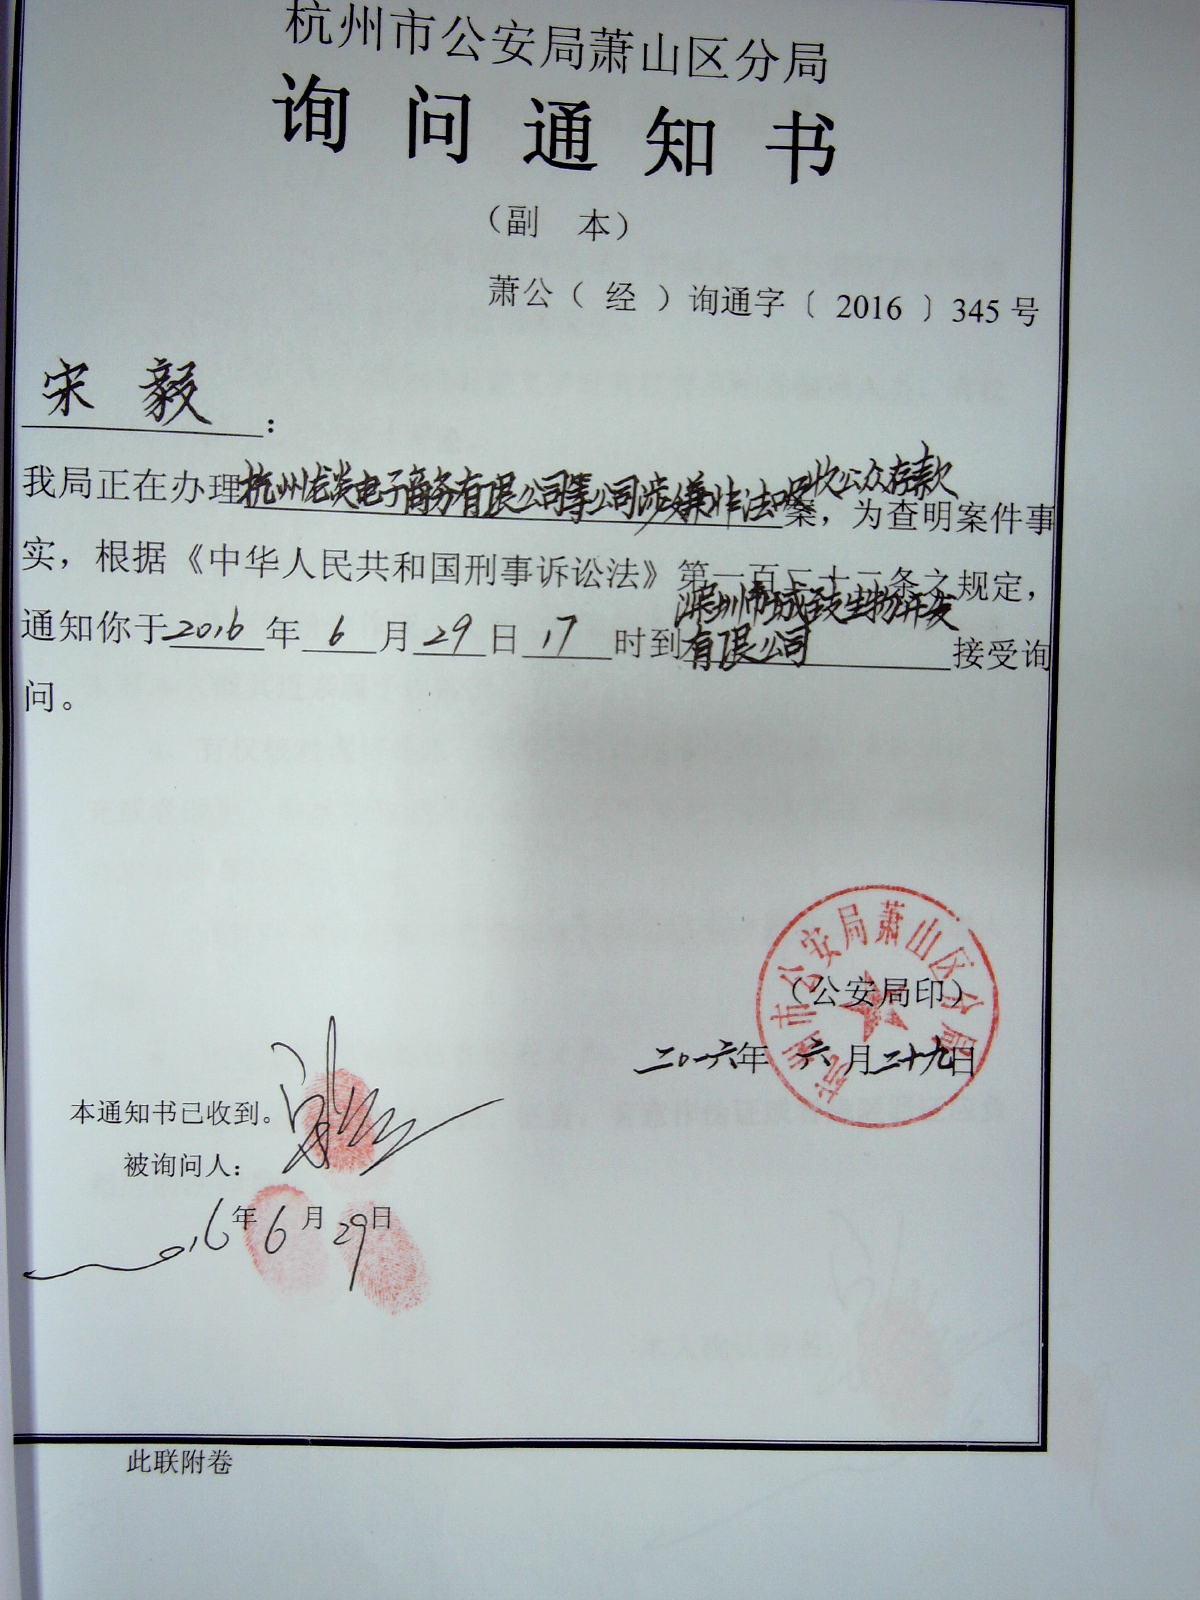 杭州市公安局萧山区分局
询问通知书
（副 本）
萧公（ 经 ）询通字〔 2016 〕345 号
宋 毅：
我局正在办理杭州龙炎电子商务有限公司等公司涉嫌非法吸收公众存款案，为查明案件事
实，根据《中华人民共和国刑事诉讼法》第一百二十二条之规定，
通知你于2016年6月29日17时到深圳市成至生物开发
有限公司接受询
问。
杭州市公安局萧山区分局
（公安局印）
二0一六年 六月二十九日
本通知书已收到。
被询问人：
16年6月29日
此联附卷